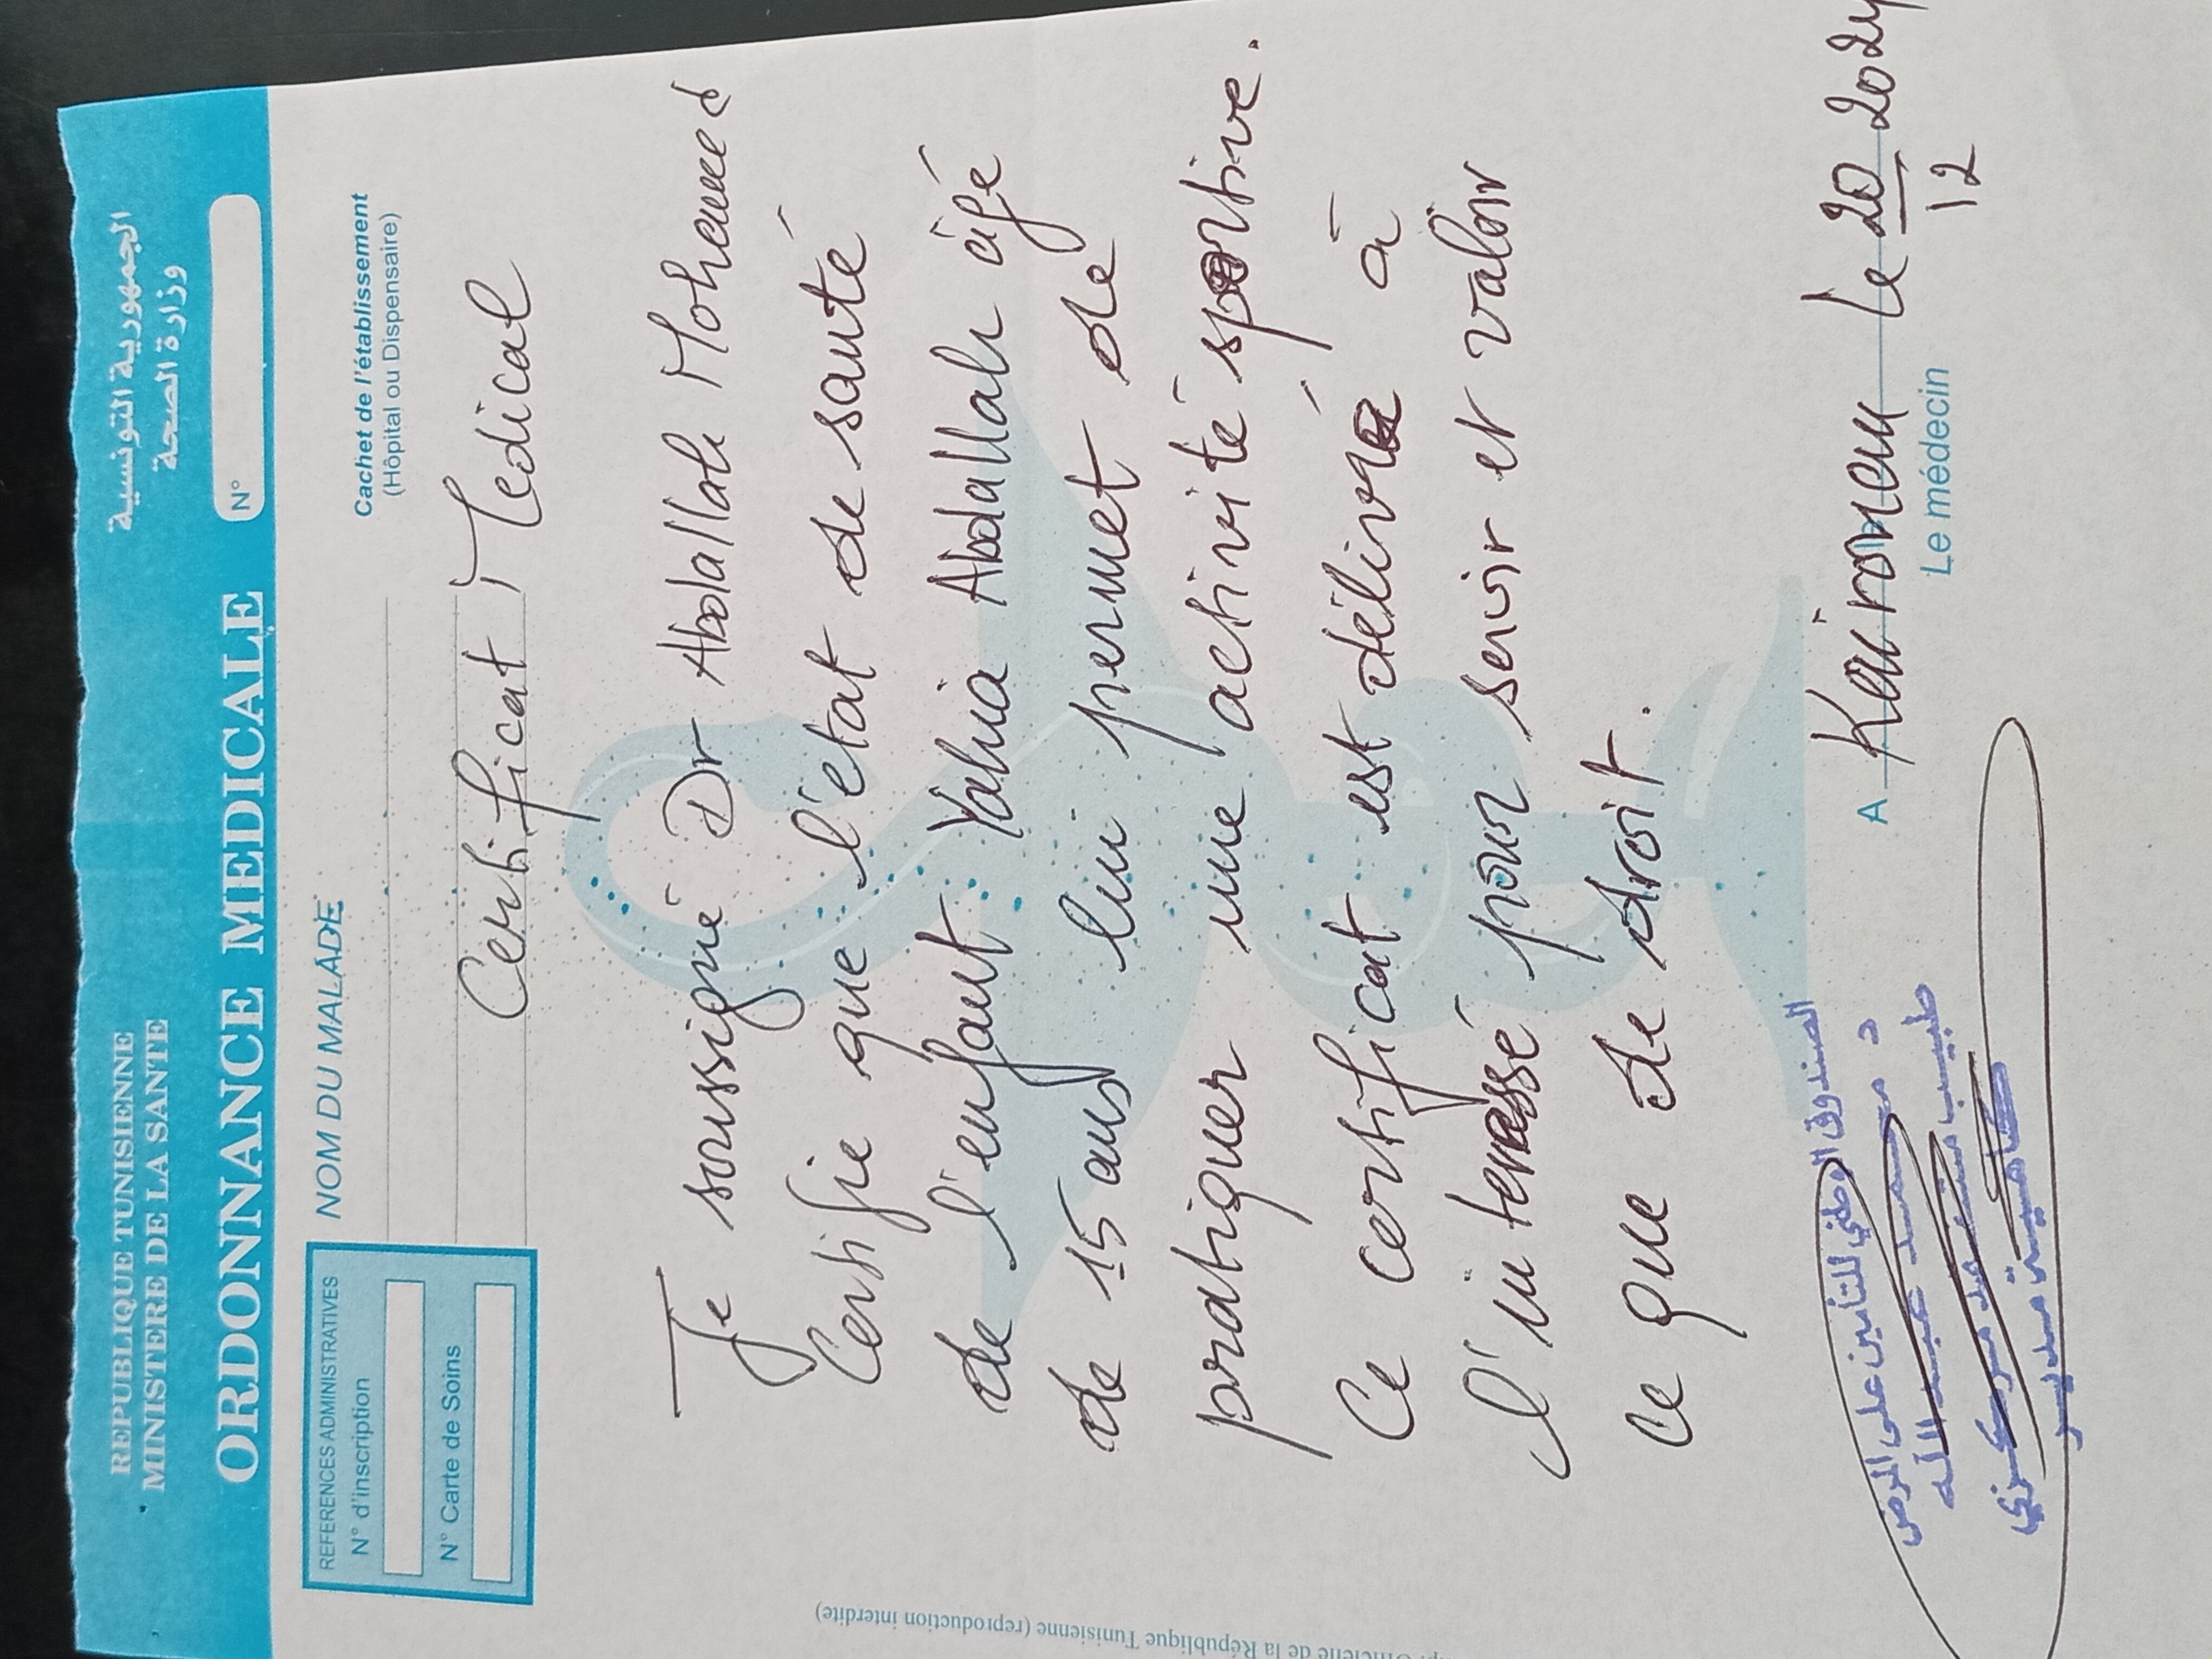 REPUBLIQUE TUNISIENNE
MINISTERE DE LA SANTE
الجمهورية التونسية
وزارة الصحة
ORDONNANCE MEDICALE
N°
REFERENCES ADMINISTRATIVES
N° d'inscription
N° Carte de Soins
NOM DU MALADE
Cachet de l'établissement
(Hôpital ou Dispensaire)
Certificat Medical
Je soussigné Dr Abdallah Mohamed
Certifie que l'état de santé
de l'enfant Yahia Abdallah âgé
de 15 ans lui permet de
pratiquer une activité sportive.
Ce certificat est délivré à
l'interessé pour servir et valoir
ce que de droit.
A Kairouan le 20 2024
12
Le médecin
الصندوق الوطني للتأمين على المرض
د محمد عبد الله
طبيب مستشهد مركزي
كاهية مدير
Officielle de la République Tunisienne (reproduction interdite)